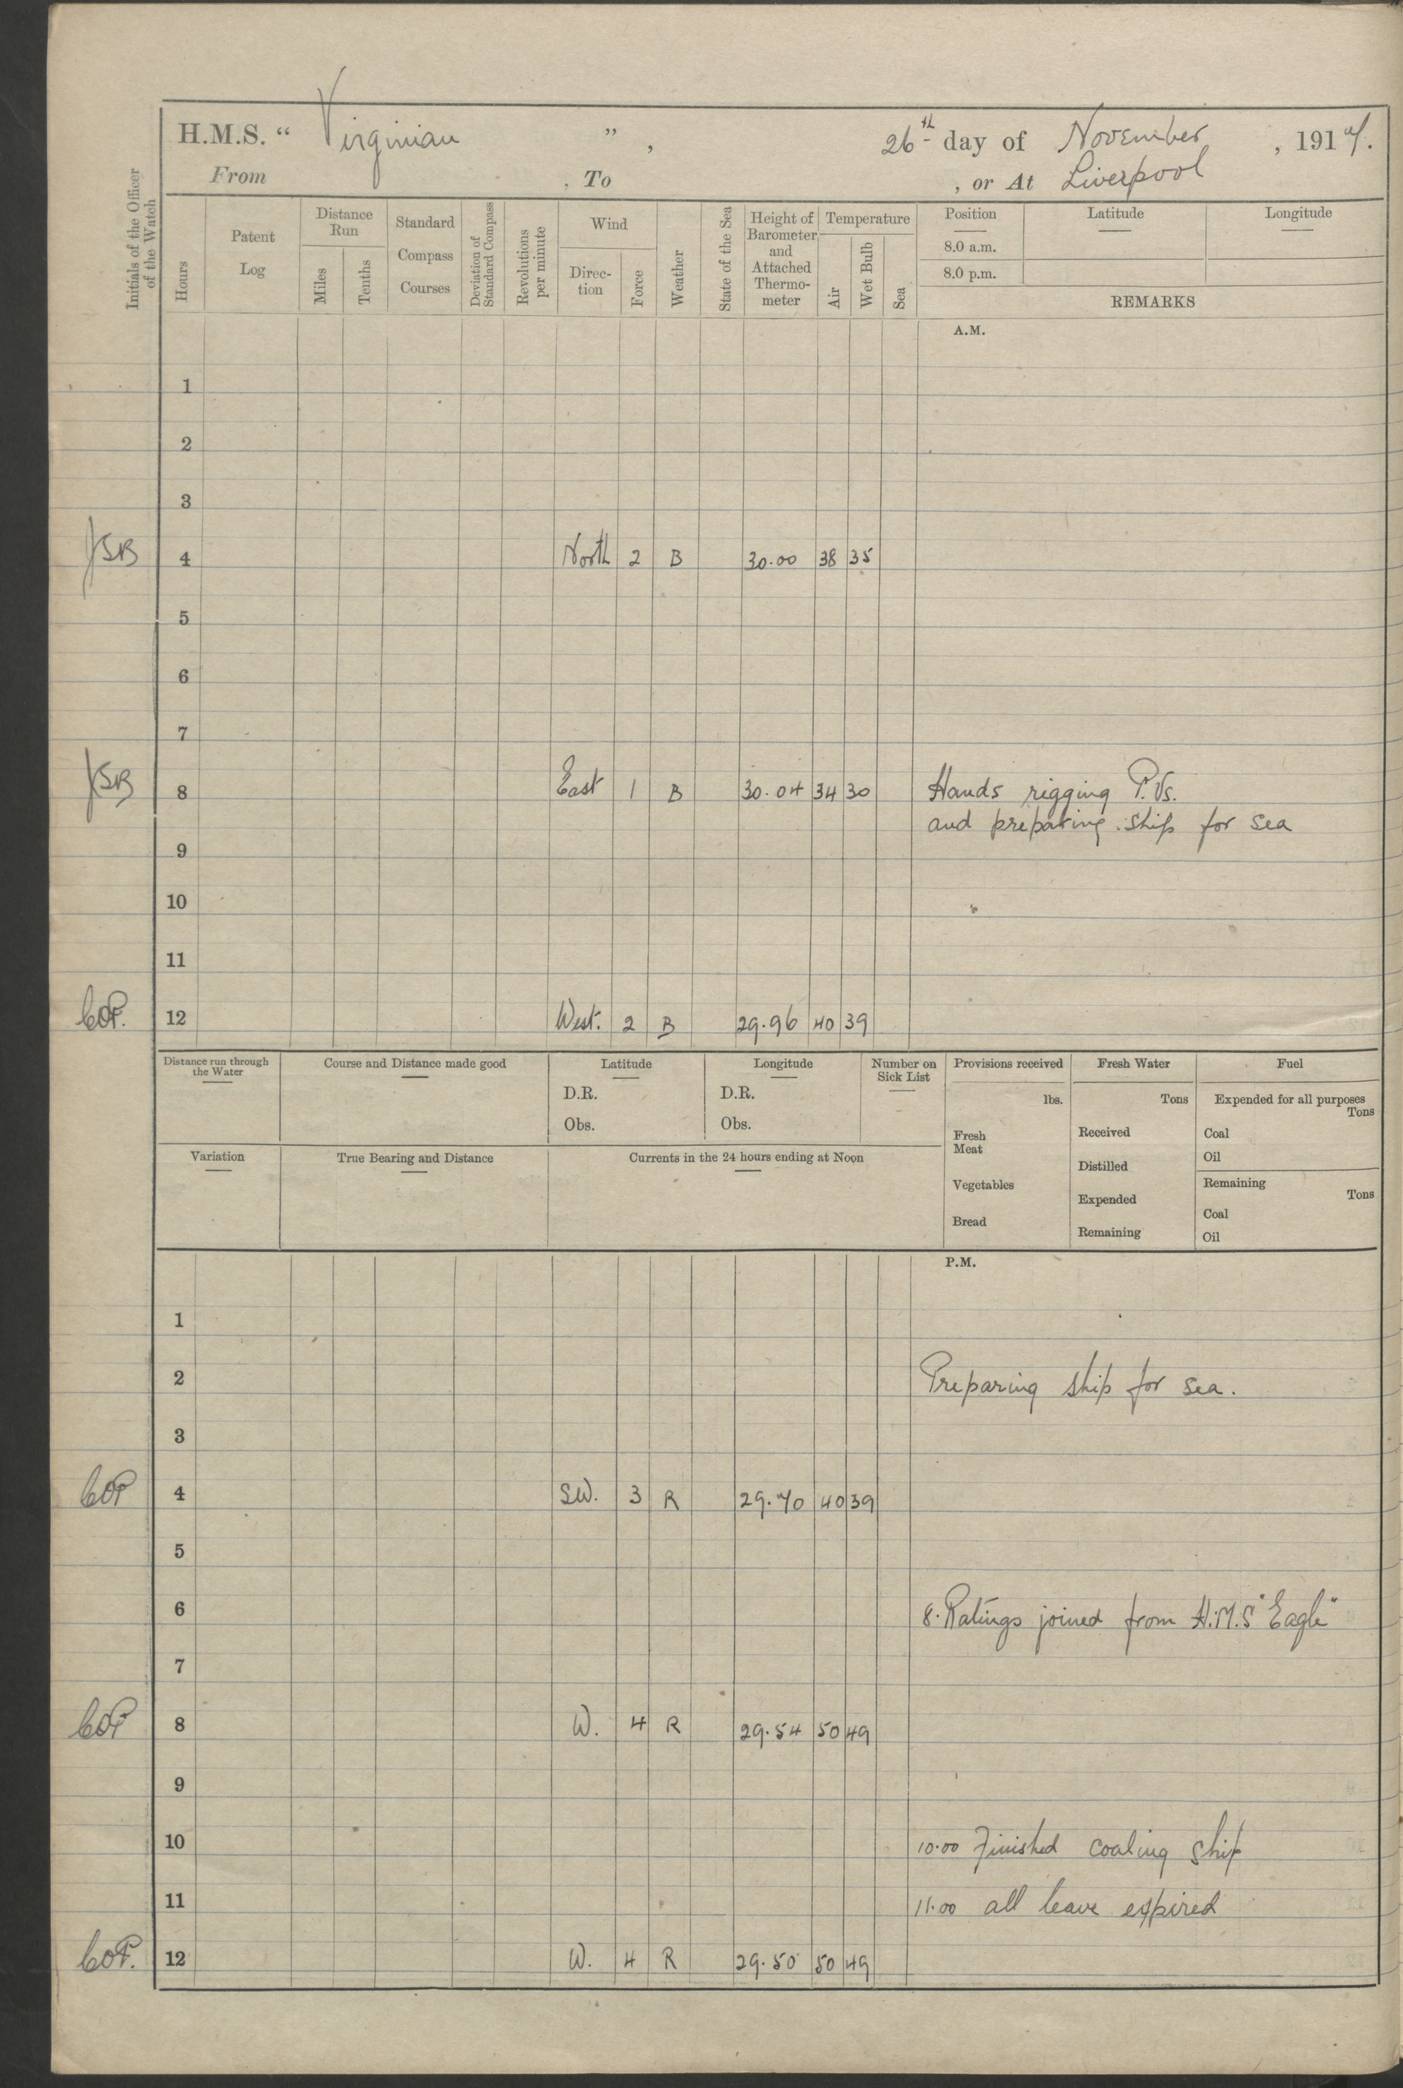 H.M.S. “ Virginian ” , 26th day of November , 1917.
From , To , or At Liverpool
Initials of the Officer of the Watch
Hours
Patent Log
Distance Run
Miles
Tenths
Standard Compass Courses
Deviation of Standard Compass
Revolutions per minute
Wind
Direction
Force
Weather
State of the Sea
Height of Barometer and Attached Thermometer
Temperature
Air
Wet Bulb
Sea
Position Latitude Longitude
8.0 a.m.
8.0 p.m.
REMARKS
A.M.
1
2
3
JSB 4 North 2 B 30.00 38 35
5
6
7
JSB 8 East 1 B 30.04 34 30 Hands rigging P.Vs.
and preparing ship for sea
9
10
11
COP. 12 West. 2 B 29.96 40 39
Distance run through the Water
Course and Distance made good
Latitude
D.R.
Obs.
Longitude
D.R.
Obs.
Number on Sick List
Provisions received
lbs.
Fresh Meat
Vegetables
Bread
Fresh Water
Tons
Received
Distilled
Expended
Remaining
Fuel
Expended for all purposes
Tons
Coal
Oil
Remaining
Tons
Coal
Oil
Variation
True Bearing and Distance
Currents in the 24 hours ending at Noon
P.M.
1
2 Preparing ship for sea.
3
COP 4 SW. 3 R 29.70 40 39
5
6 8. Ratings joined from H.M.S "Eagle"
7
COP 8 W. 4 R 29.54 50 49
9
10 10.00 Finished coaling ship
11 11.00 all leave expired
COP. 12 W. 4 R 29.50 50 49